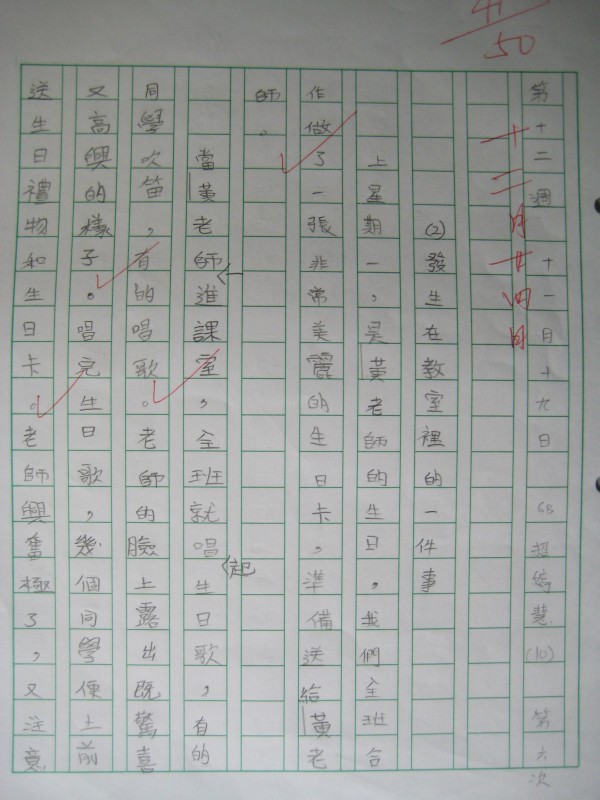 41/50
第十二週 十一月十九日 6B 招綺慧 (10) 第六次
十二月廿四日
(2)發生在教室裡的一件事
上星期一,是黃老師的生日,我們全班合
作做了一張非常美麗的生日卡,準備送給黃老
師。
當黃老師一進課室,全班就唱起生日歌,有的
同學吹笛,有的唱歌。老師的臉上露出既驚喜
又高興的樣子。唱完生日歌,幾個同學便上前
送生日禮物和生日卡。老師興奮極了,又注意